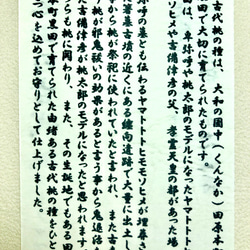 古代桃の種は、 大和の国中（くんなか）田原本
田で大切に育てられたものです。
田は、卑弥呼や桃太郎のモデルになったヤマトト
ソヒメや吉備津彦が、孝霊天皇の都があった場
弥呼の墓とも伝わるヤマトトトヒモモソヒメが埋葬
墓古墳の近くにある纒向遺跡で大量に出土し
から桃が祭祀に使われていたと言われ、また
桃が邪鬼祓いの効果があると言う事から鬼退治
た吉備津彦が桃太郎のモデルになったと思われます。
らも桃に関わり、また、その生誕地でもある田
本町黒田で育てられた由緒ある古代桃の種をひと
心を込めてお守りとして仕上げました。